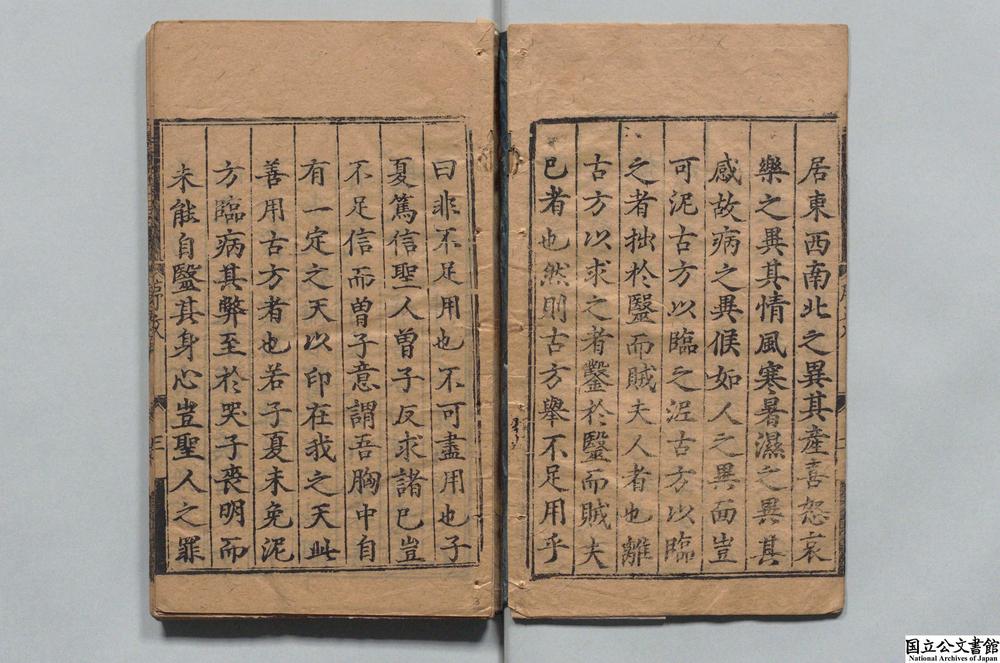 居東西南北之異其產喜怒哀
樂之異其情風寒暑濕之異其
感故病之異候如人之異面豈
可泥古方以臨之泥古方以臨
之者拙於醫而賊夫人者也離
古方以求之者鑿於醫而賊夫
已者也然則古方舉不足用乎
曰非不足用也不可盡用也子
夏篤信聖人曾子反求諸已豈
不足信而曾子意謂吾胸中自
有一定之天以印在我之天此
善用古方者也若子夏未免泥
方臨病其弊至於哭子喪明而
未能自醫其身心豈聖人之罪
国立公文書館
National Archives of Japan